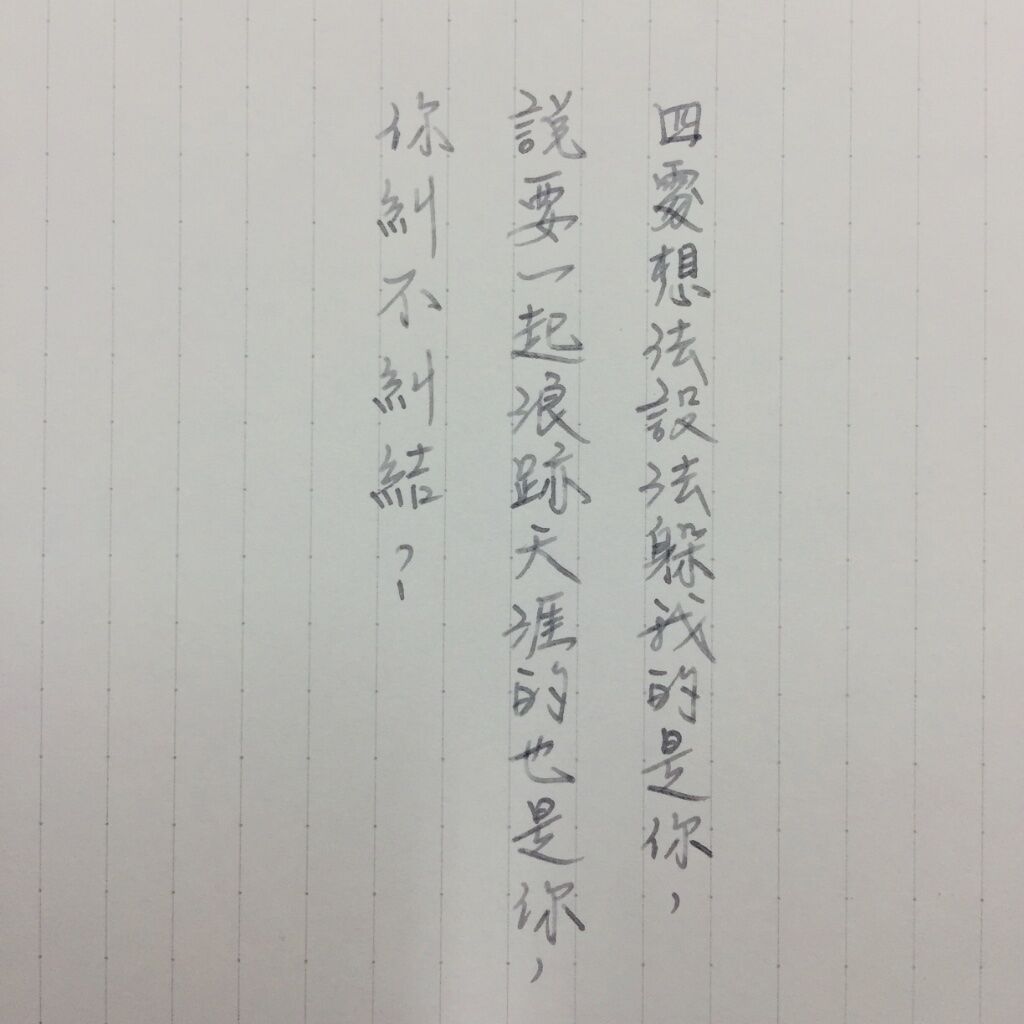 四處想法設法躲我的是你，
說要一起浪跡天涯的也是你，
你糾不糾結？